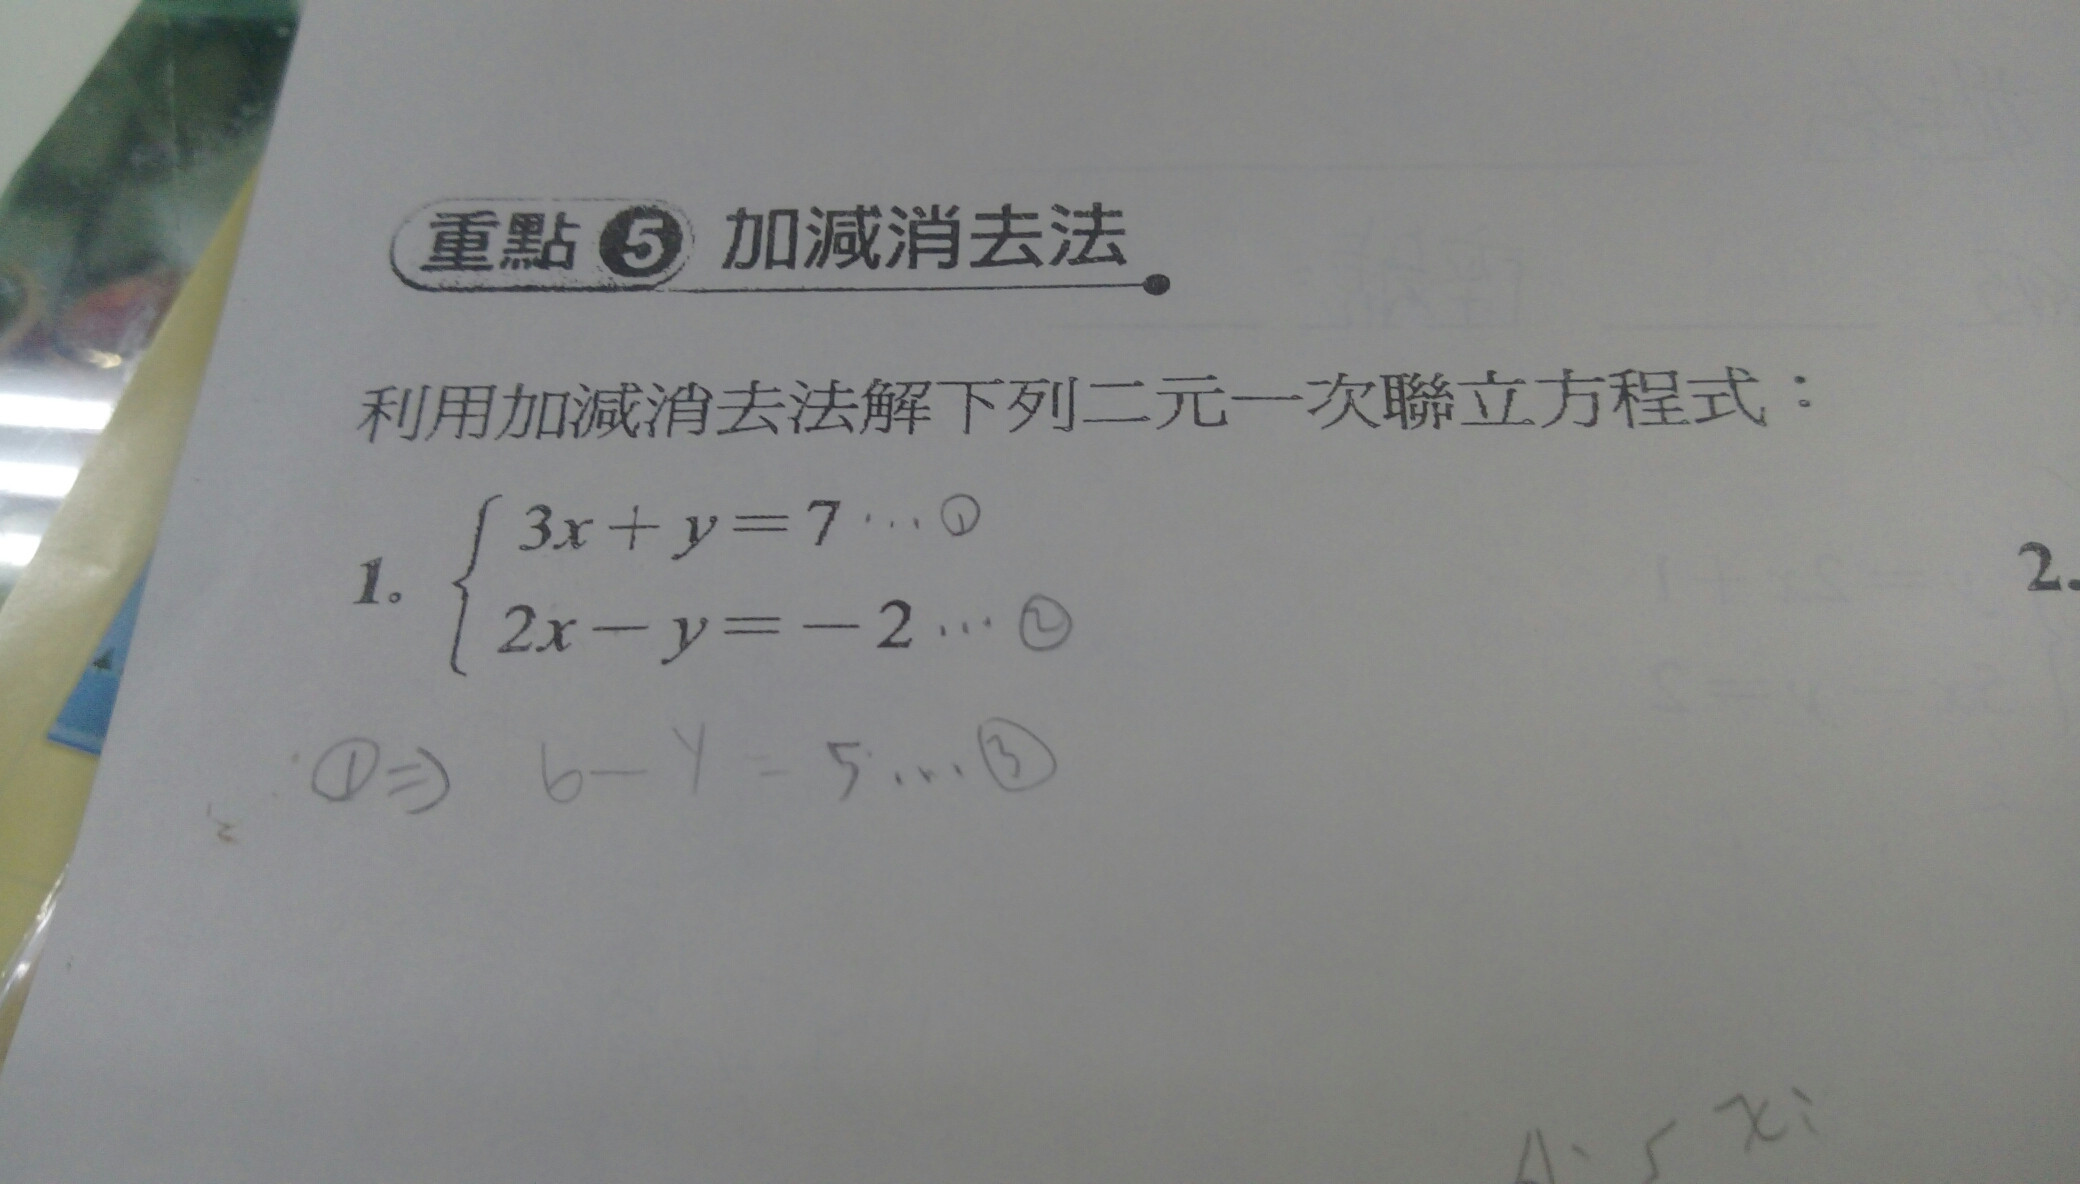 重點 5 加減消去法
利用加減消去法解下列二元一次聯立方程式：
1. { 3x + y = 7 ... ①
2x - y = -2 ... ②
2.
①⇒ 6 - y = 5 ... ③